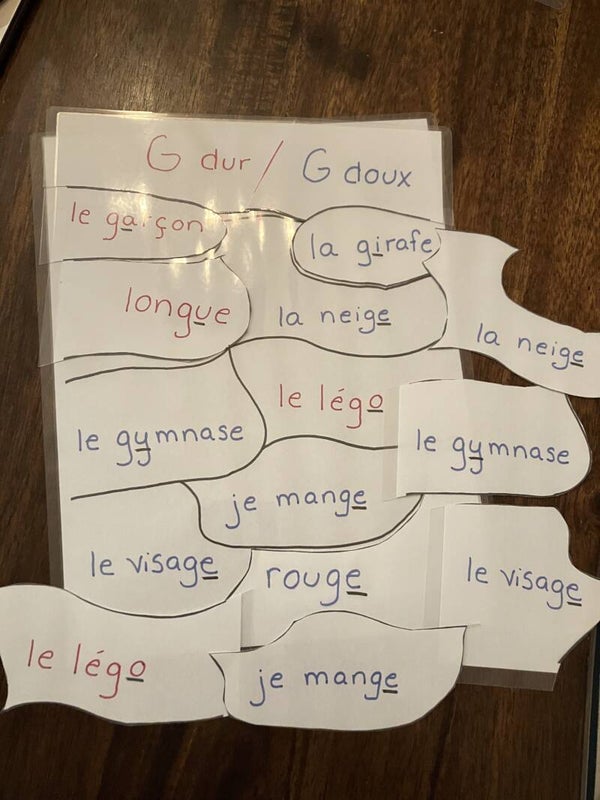 G dur / G doux
le garçon
la girafe
longue
la neige
la neige
le légo
le gymnase
le gymnase
je mange
le visage
rouge
le visage
le légo
je mange